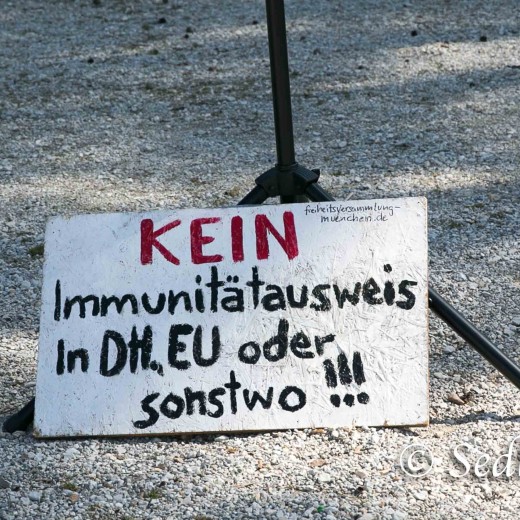 KEIN
freiheitsversammlung-
muenchen.de
Immunitätausweis
In DH., EU oder
sonstwo !!!
© Sed